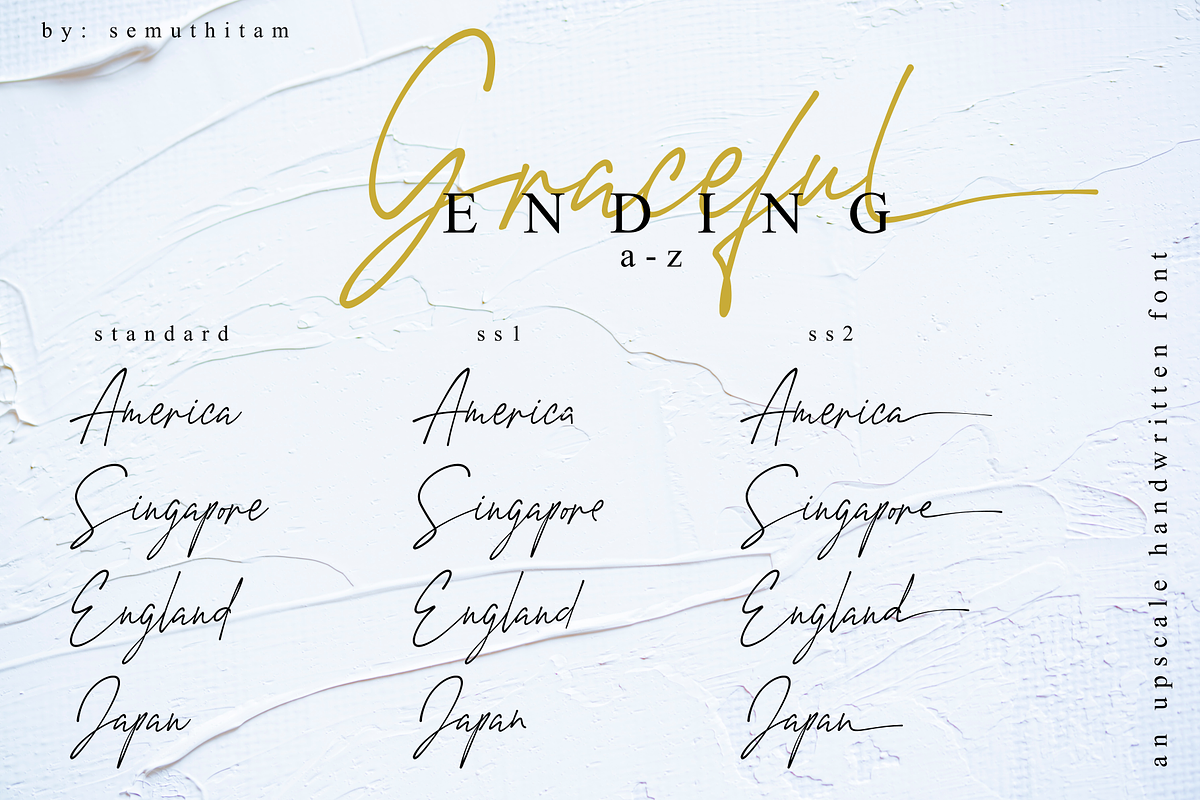 by: semuthitam
Graceful
ENDING
a-z
standard ss1 ss2
America America America
Singapore Singapore Singapore
England England England
Japan Japan Japan
an upscale handwritten font